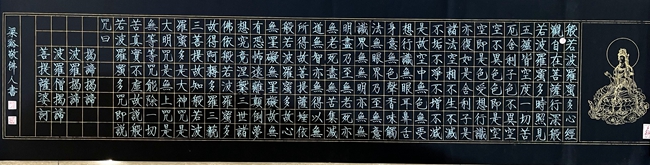 般若波羅蜜多心經
觀自在菩薩行深般
若波羅蜜多時照見
五蘊皆空度一切苦
厄舍利子色不異空
空不異色色即是空
空即是色受想行識
亦復如是舍利子是
諸法空相不生不滅
不垢不淨不增不減
是故空中無色無受
想行識無眼耳鼻舌
身意無色聲香味觸
法無眼界乃至無意
識界無無明亦無無
明盡乃至無老死亦
無老死盡無苦集滅
道無智亦無得以無
所得故菩提薩埵依
般若波羅蜜多故心
無罣礙無罣礙故無
有恐怖遠離顛倒夢
想究竟涅槃三世諸
佛依般若波羅蜜多
故得阿耨多羅三藐
三菩提故知般若波
羅蜜多是大神咒是
大明咒是無上咒是
無等等咒能除一切
苦真實不虛故說般
若波羅蜜多咒即說
咒曰
揭諦揭諦
波羅揭諦
波羅僧揭諦
菩提薩婆訶
梁谿佛人書